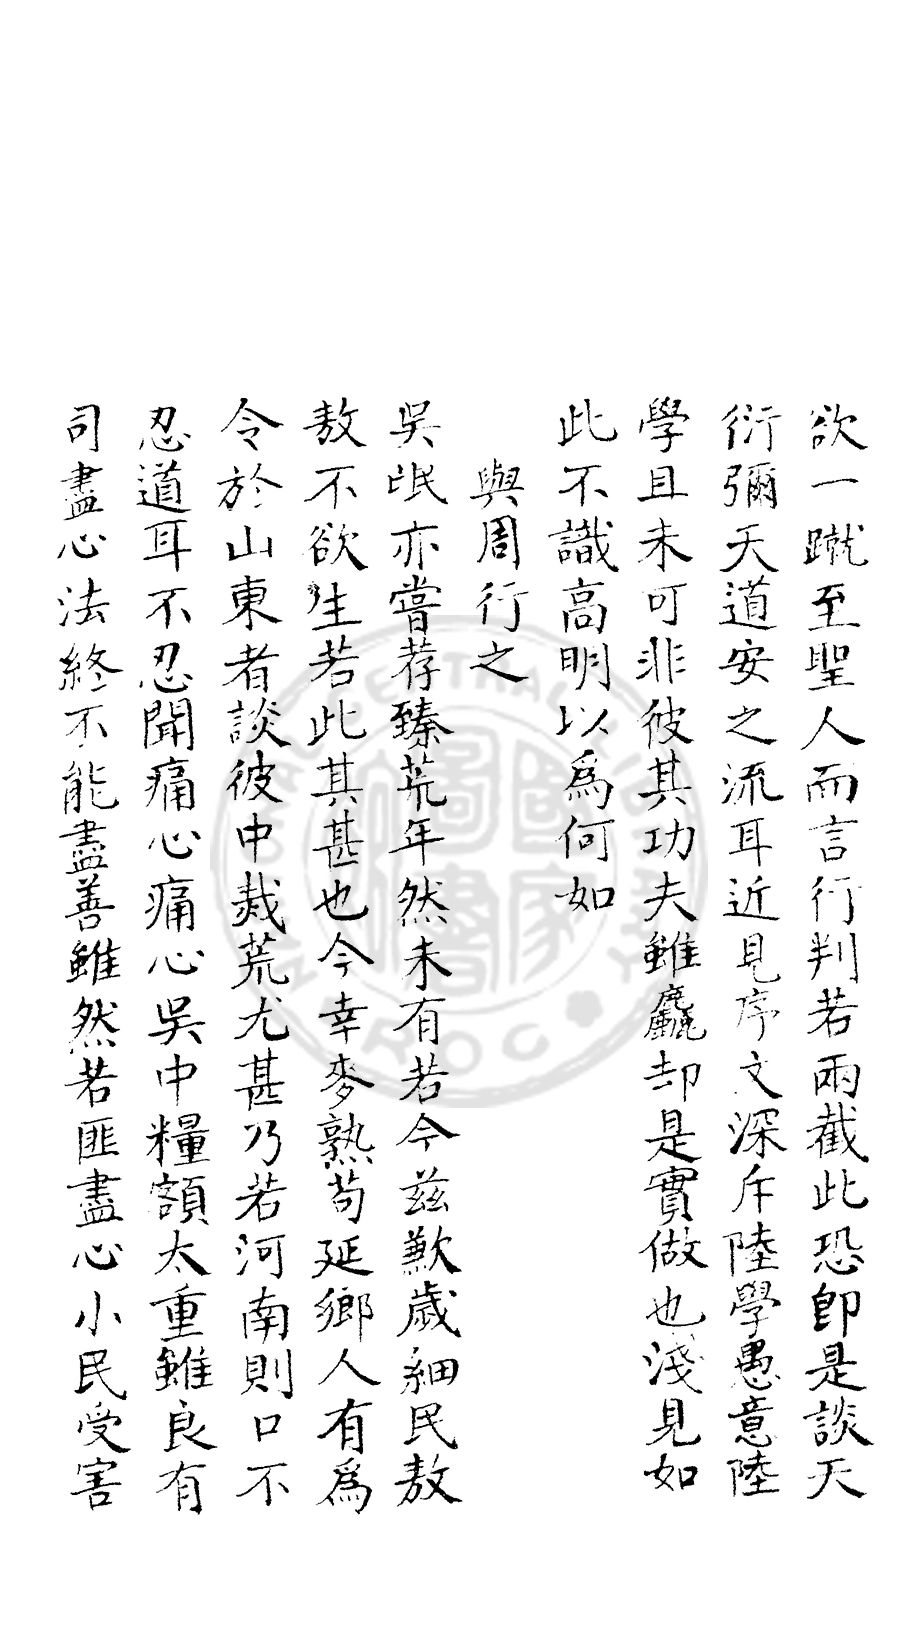 欲一蹴至聖人而言行判若兩截此恐即是談天
衍彌天道安之流耳近見序文深斥陸學愚意陸
學且未可非彼其功夫雖麤却是實做也淺見如
此不識高明以為何如
與周行之
吳民亦嘗荐臻荒年然未有若今茲歉歲細民敖
敖不欲生若此其甚也今幸麥熟苟延鄉人有為
令於山東者談彼中烖荒尤甚乃若河南則口不
忍道耳不忍聞痛心痛心吳中糧額太重雖良有
司盡心法終不能盡善雖然若匪盡心小民受害